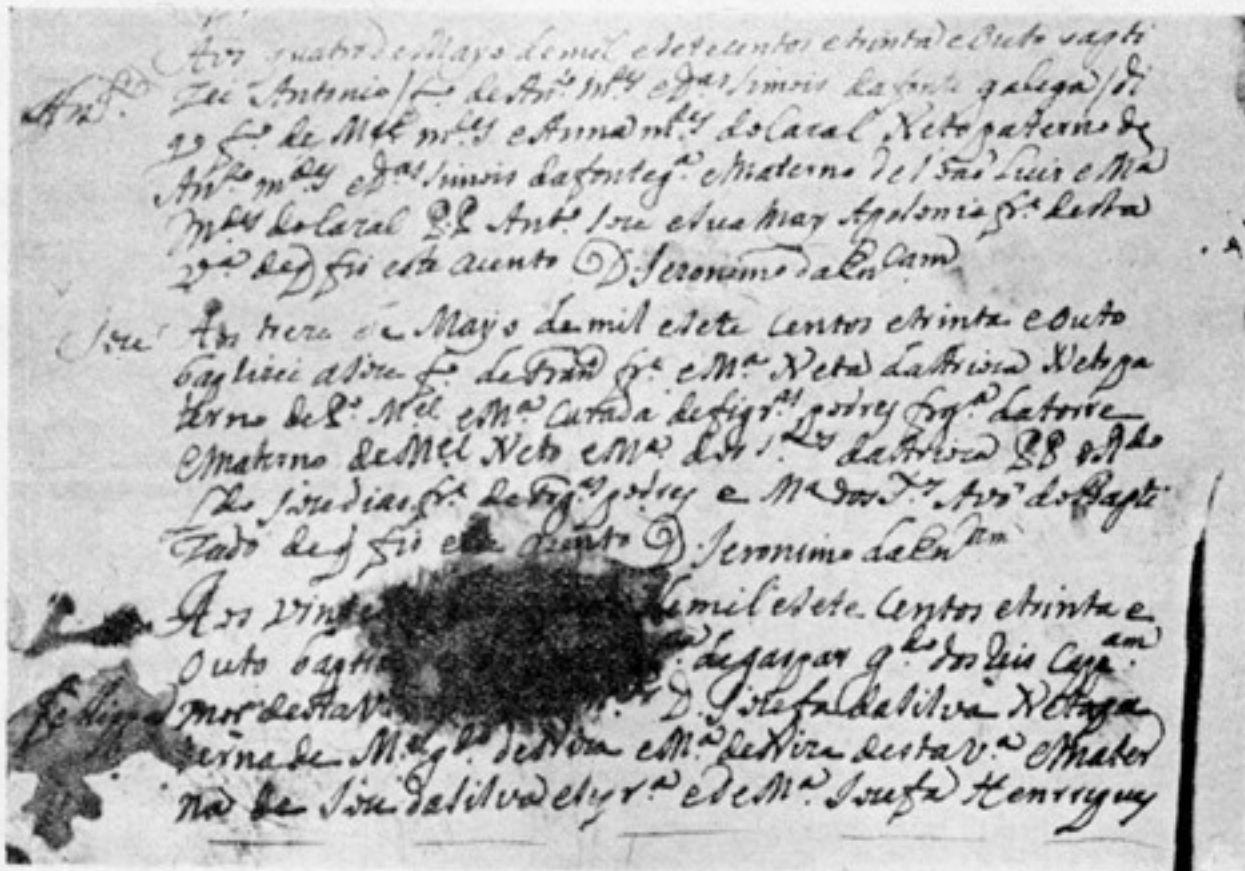 Aos quatro de Mayo de mil e sete centos e trinta e outo bapti
Ant.º zei Antonio / f.º de An.º m.es e D.as simois da fonte galega / di
go f.º de M.el m.es e Anna m.es do Caral Neto paterno de
An.to m.des e D.as simois da fonte g.ª e Materno de João Luis e M.ª
m.des do Caral P.P. Ant.º Joze e sua May Apolonia fr.ª desta
v.ª de q fis este acento D. Jeronimo da En Cam
Joze Aos treze de Mayo de mil e sete centos e trinta e outo
baptizei a Joze f.º de Fran fr.ª e M.ª Neta da Neto pa
terno de P.º M.el e M.ª de figr.as podres frg.ª da torre
e Materno de M.el Neto e M.ª dos da P.P. o
Joze dias fr.ª de Fig.as podres e M.ª dos Avó do Bapti
zado de q fis este acento D. Jeronimo da En
Aos vinte de mil e sete centos e trinta e
outo bapti de gaspar g.lo dos Reis Capp.am
mor desta V. D. Josefa da Silva Neta pa
terna de M.el g.lo de e M.ª de desta V.ª e Mater
na de Joze da Silva e de M.ª Josefa Henrryques